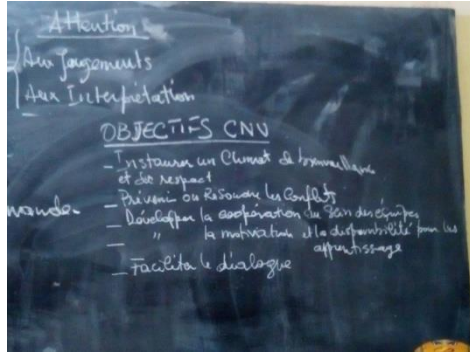 Attention
Aux Jugements
Aux Interprétation
OBJECTIFS CNV
_ Instaurer un Climat de bienveillance
et de respect
_ Prévenir ou Résoudre les Conflits
_ Développer la coopération au sein des équipes
_ " la motivation et la disponibilité pour les
apprentissage
_ Faciliter le dialogue